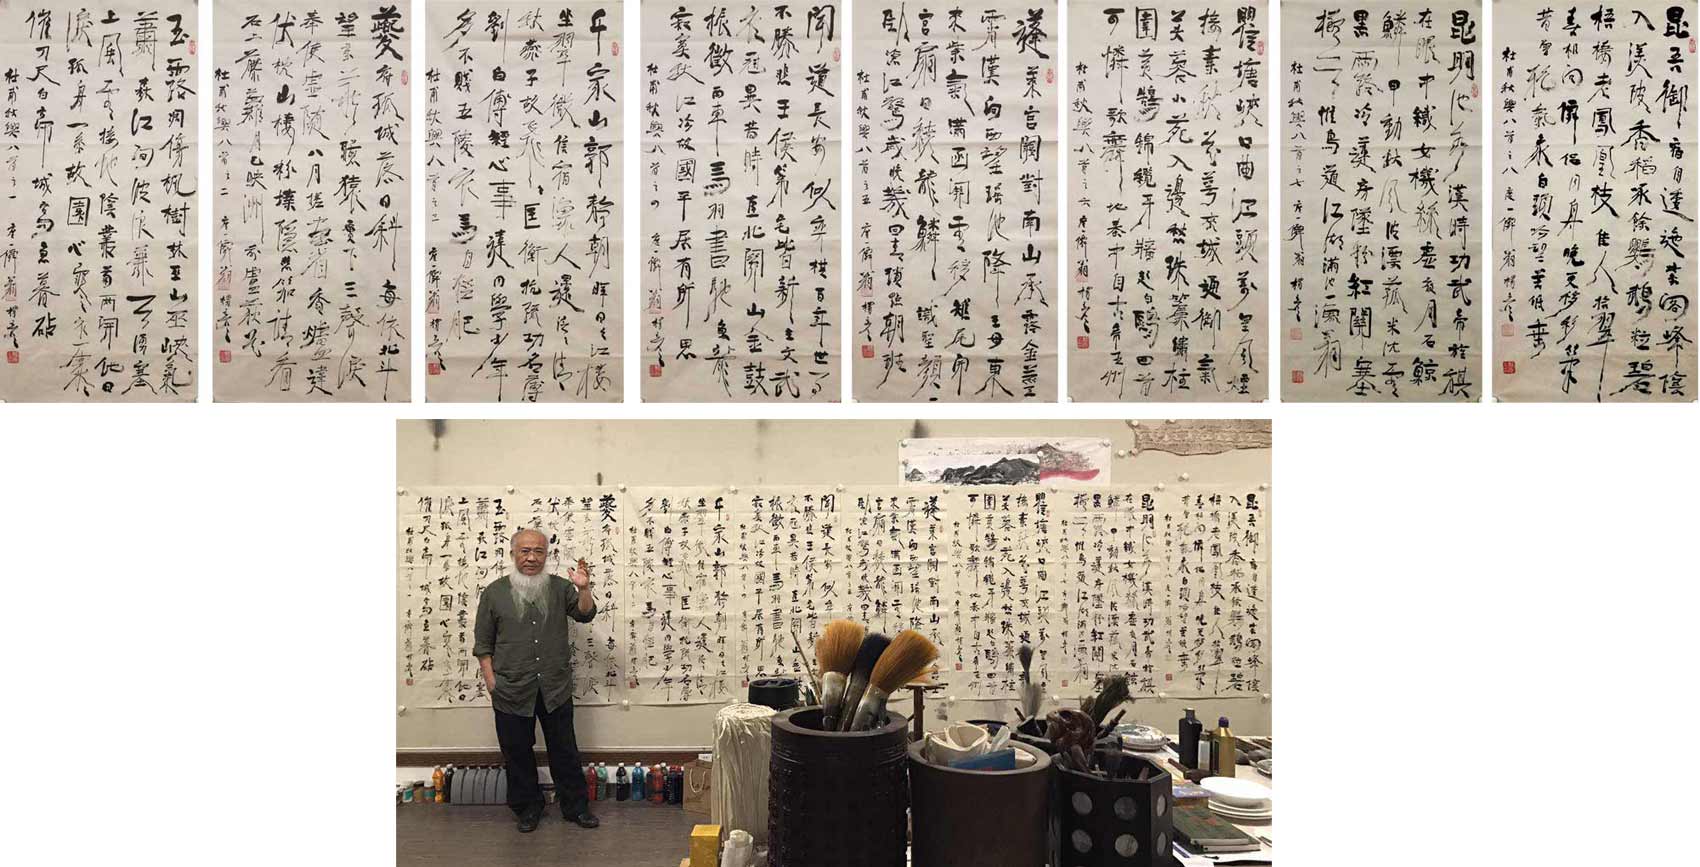 玉露凋傷楓樹林巫山巫峽氣
蕭森江間波浪兼天湧塞
上風雲接地陰叢菊兩開他日
淚孤舟一系故園心寒衣處處
催刀尺白帝城高急暮砧
杜甫秋興八首之一
夔府孤城落日斜每依北斗
望京華聽猿實下三聲淚
奉使虛隨八月槎畫省香爐違
伏枕山樓粉堞隱悲笳請看
石上藤蘿月已映洲前蘆荻花
杜甫秋興八首之二
千家山郭靜朝暉日日江樓
坐翠微信宿漁人還泛泛清
秋燕子故飛飛匡衡抗疏功名薄
劉向傳經心事違同學少年
多不賤五陵衣馬自輕肥
杜甫秋興八首之三
聞道長安似弈棋百年世事
不勝悲王侯第宅皆新主文武
衣冠異昔時直北關山金鼓
振徵西車馬羽書馳魚龍
寂寞秋江冷故國平居有所思
杜甫秋興八首之四
蓬萊宮闕對南山承露金莖
霄漢間西望瑤池降王母東
來紫氣滿函關雲移雉尾開
宮扇日繞龍鱗識聖顏一
臥滄江驚歲晚幾回青瑣點朝班
杜甫秋興八首之五
瞿塘峽口曲江頭萬里風煙
接素秋花萼夾城通御氣
芙蓉小苑入邊愁珠簾繡柱
圍黃鵠錦纜牙檣起白鷗回首
可憐歌舞地秦中自古帝王州
杜甫秋興八首之六
昆明池水漢時功武帝旌旗
在眼中織女機絲虛夜月石鯨
鱗甲動秋風波漂菰米沉雲
黑露冷蓮房墜粉紅關塞
極天惟鳥道江湖滿地一漁翁
杜甫秋興八首之七
昆吾御宿自逶迤紫閣峰陰
入渼陂香稻啄餘鸚鵡粒碧
梧棲老鳳凰枝佳人拾翠
春相問仙侶同舟晚更移彩筆
昔曾干氣象白頭吟望苦低垂
杜甫秋興八首之八